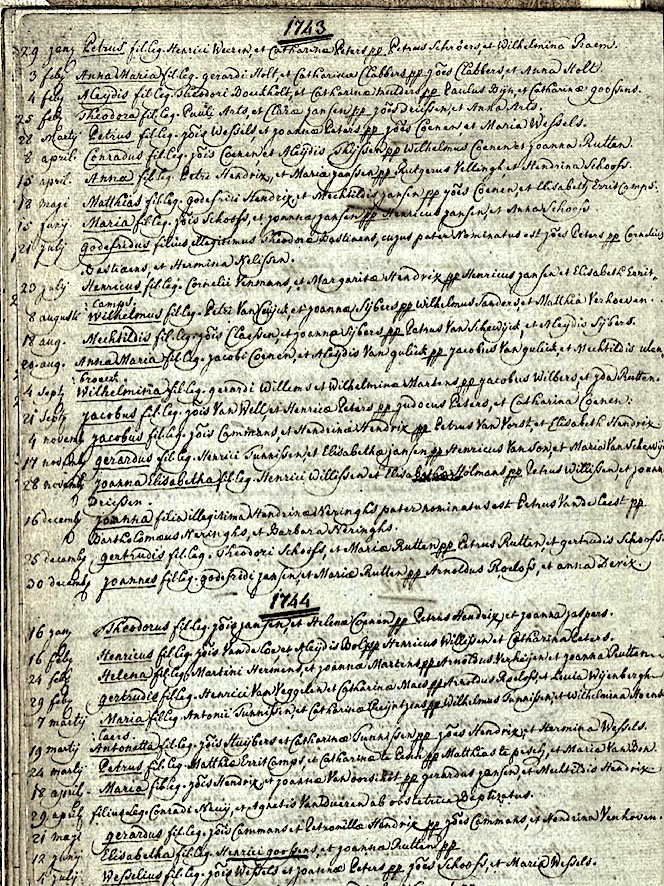 1743
29 janij Petrus fil: leg: Henrici et Catharina Peters pp Petrus Schröers, et Wilhelmina
3 febij Anna Maria fil: leg: gerardi Holt, et Catharinæ Clabbers pp jões Clabbers, et Anna Holt.
4 febij Aleijdis fil: leg: Theodori et Catharinæ pp Paulus et Catharinæ goossens.
25 feb Theodora fil: leg: Pauli Arts, et Claræ jansen pp jões et Anna Arts.
28 Martij Petrus fil: leg: jõis Wessels et joannæ Peters pp jões Coenen, et Maria Wessels.
8 april Conradus fil: leg: jõis Coenen et Aleijdis Thijssen pp Wilhelmus Coenen et joanna Rutten.
15 april Anna fil: leg: Petri Hendrix, et Maria jansen pp Rutgerus Vellingh et Hendrina Schoofs.
18 maji Matthias fil: leg: godefridi Hendrix, et Mechtildis jansen pp jões Coenen, et Elisabeth Errit Camps.
15 junij Maria fil: leg: jõis Schoofs, et joanna jansen pp Henricus jansen, et Anna Schoofs
21 julij godefridus filius illegitimus Theodoræ Bastiaens, cujus pater Nominatus est jões Peters pp Cornelius
Bastiaens, et Hermina Nelissen.
23 julij Henricus fil: leg: Cornelii Venmans, et Margaritæ Hendrix pp Henricus jansen et Elisabeth Errit-
Camps.
8 augusti Wilhelmus fil: leg: Petri Van Cuijck et joannæ Sijbers pp Wilhelmus Sanders et Matthia Verhoeven.
18 aug. Mechtildis fil: leg: jõis Claessen, et joannæ Sijbers pp Petrus Van et Aleijdis Sijbers.
20 aug. Anna Maria fil: leg: jacobi Coenen, et Aleijdis Van gulick pp jacobus Van gulick, et Mechtildis
broeck.
4 Septij Wilhelmina fil: leg: gerardi Willems et Wilhelmina Martens pp jacobus Wilbers, et Ida Rutten.
21 Septij jacobus fil: leg: jõis Van Well, et Henricæ Peters pp judocus Peters, et Catharina Coenen.
4 novemb jacobus fil: leg: jõis Cammans, et Hendrinæ Hendrix pp Petrus Van Vorst, et Elisabeth Hendrix
17 novemb gerardus fil: leg: Henrici Tunnissen, et Elisabetha jansen pp Henricus Van Son, et Maria Van
28 novemb joanna Elisabetha fil: leg: Henrici Willissen et Elisabetha Holmans pp Petrus Willissen, et joanna
Driessen.
16 decemb joanna filia illegitima Hendrinæ Neringhs pater nominatus est Petrus Vande Leest pp
Bartholomæus Neringhs, et Barbara Neringhs.
25 decemb gertrudis fil: leg: Theodori Schoofs, et Mariæ Rutten pp Petrus Rutten, et gertrudis Schoofs.
30 decemb joannes fil: leg: godefridi jansen, et Mariæ Rutten pp Arnoldus Roelofs, et anna Derix.
1744
16 janij Theodorus fil: leg: jõis jansen, et Helena Coenen pp Petrus Hendrix, et joanna jaspers.
16 febij Henricus fil: leg: jõis Vande Loo et Aleijdis pp Henricus Willissen et Catharina Peters.
24 feb Helena fil: leg: Martini Hermens, et joannæ Martens pp Arnoldus Verheijen et joanna Rutten
29 febij gertrudis fil: leg: Henrici Van Veggelen et Catharina Maes pp Arnoldus Roelofs, et Lucia Wijenbergh
7 martij Maria fil: leg: Antonii Tunnissen, et Catharinæ pp Wilhelmus Tunnissen, et Wilhelmina
laers.
19 martij Antonetta fil: leg: jõis Stuijbers et Catharinæ Tunnissen pp jões Hendrix, et Hermina Wessels.
24 martij Petrus fil: leg: Matthiæ Errit Camps, et Catharina pp Matthias et Maria Van Bon.
18 april. Maria fil: leg: jõis Hendrix, et joannæ Van pp gerardus jansen, et Mechtildis Hendrix
29 april filius leg: Conradi et Agnetis Van Dueren ab obstetrice Baptizatus.
21 maji gerardus fil: leg: jõis Cammans et Petronillæ Hendrix pp jões Cammans, et Hendrina Verhoven.
12 junij Elisabetha fil: leg: Henrici goossens, et joannæ Rutten pp
4 julij Wesselius fil: leg: jõis Wessels et joannæ Peters pp jões Schoofs, et Maria Wessels.